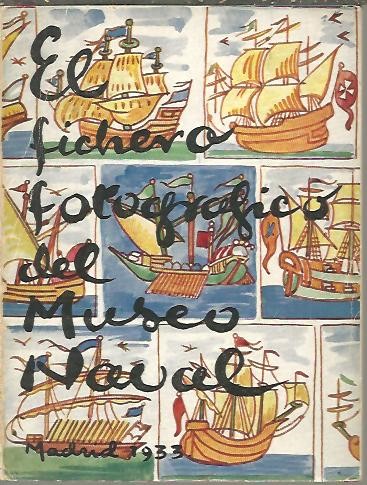 El
fichero
fotografico
del
Museo
Naval
Madrid 1933